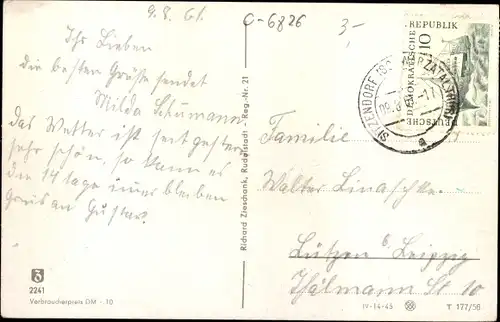 9.8.61.
C-6826
3,-
Ihr Lieben
die besten Grüße sendet
Milda Schumann
das Wetter ist seit gestern
sehr schön, so kann es
die 14 tage immer bleiben
Gruß an Gustav.
2241
Verbraucherpreis DM -.10
Richard Zieschank, Rudolstadt · Reg.-Nr. 21
DEUTSCHE
DEMOKRATISCHE
REPUBLIK
10
SITZENDORF
Familie
Walter Linaschke.
Lützen b. Leipzig
Thälmann St 10
IV-14-45
T 177/56